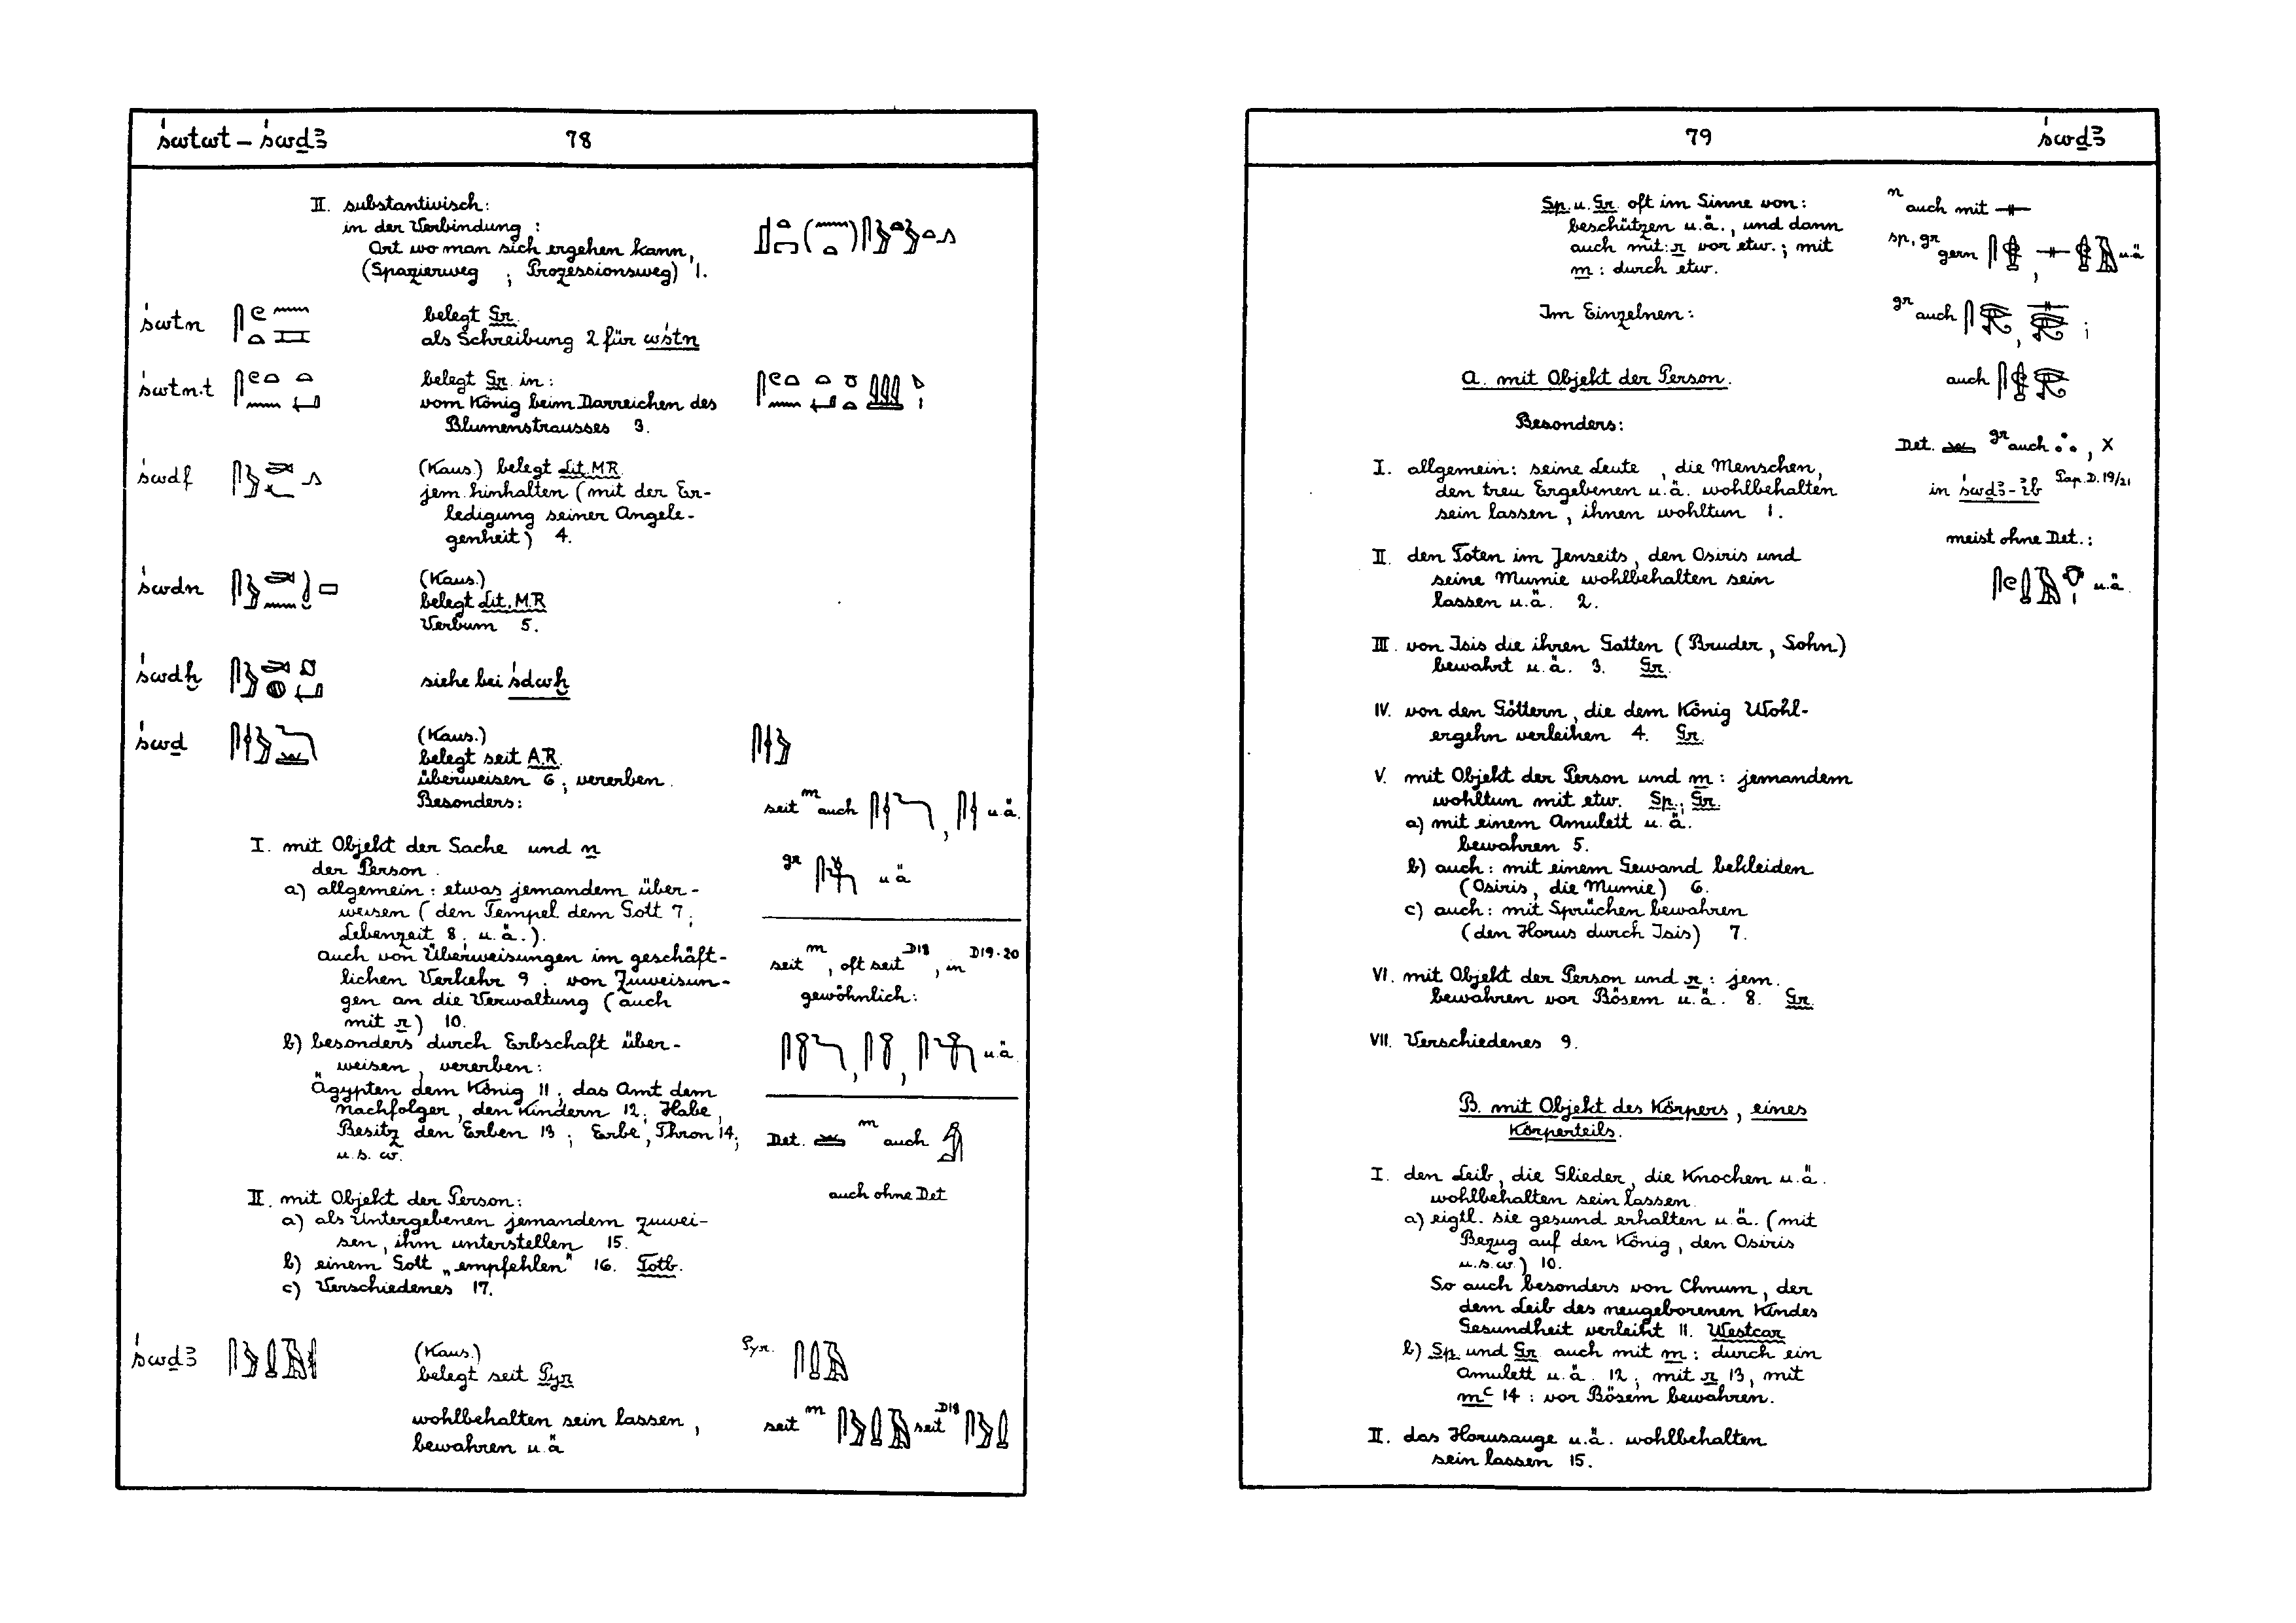 św​twt – świḏꜣ 78
II. substantivisch:
in der Verbindung :
Ort wo man sich ergehen kann,
(Spazierweg ; Prozessionsweg) 1.
śwtn
belegt Gr.
als Schreibung 2 für wśtn
śwtn.t
belegt Gr. in:
vom König beim Darreichen des
Blumenstrausses 3.
śwdf
(Kaus.) belegt Lit. MR.
jem. hinhalten (mit der Er-
ledigung seiner Angele-
genheit) 4.
śwdn
(Kaus.)
belegt Lit. M.R
Verbum 5.
śwdḫ
siehe bei śdwḫ
śwḏ
(Kaus.)
belegt seit A.R.
überweisen 6; vererben.
Besonders:
seit m auch , u.ä.
I. mit Objekt der Sache und n
der Person.
gr u ä
a) allgemein: etwas jemandem über-
weisen (den Tempel dem Gott 7;
Lebenzeit 8; u.ä.).
auch von Überweisungen im geschäft-
lichen Verkehr 9. von Zuweisun-
gen an die Verwaltung (auch
mit r) 10.
seit m, oft seit D18, in D19-20
gewöhnlich:
, , u.ä.
b) besonders durch Erbschaft über-
weisen, vererben:
Ägypten dem König 11; das Amt dem
Nachfolger, den Kindern 12; Habe,
Besitz den Erben 13; Erbe, Thron 14;
u.s.w.
Det. m auch
auch ohne Det
II. mit Objekt der Person:
a) als Untergebenen jemandem zuwei-
sen, ihm unterstellen 15.
b) einem Gott „empfehlen" 16. Totb.
c) Verschiedenes 17.
śwḏꜣ
(Kaus.)
belegt seit Pyr
Pyr.
wohlbehalten sein lassen,
bewahren u.ä
seit m seit D18
79 śwḏꜣ
Sp. u. Gr. oft im Sinne von:
beschützen u.ä., und dann
auch mit: r vor etw.; mit
m: durch etw.
n auch mit
sp, gr gern , u.ä
Im Einzelnen:
gr auch , ;
A. mit Objekt der Person.
auch
Besonders:
Det. gr auch , X
I. allgemein: seine Leute, die Menschen,
den treu Ergebenen u.ä. wohlbehalten
sein lassen, ihnen wohltun 1.
in śwḏꜣ-ỉb Pap. D. 19/21
meist ohne Det.:
u.ä.
II. den Toten im Jenseits, den Osiris und
seine Mumie wohlbehalten sein
lassen u.ä. 2.
III. von Isis die ihren Gatten (Bruder, Sohn)
bewahrt u.ä. 3. Gr.
IV. von den Göttern, die dem König Wohl-
ergehn verleihen 4. Gr.
V. mit Objekt der Person und m: jemandem
wohltun mit etw. Sp.; Gr.
a) mit einem Amulett u.ä.
bewahren 5.
b) auch: mit einem Gewand bekleiden
(Osiris, die Mumie) 6.
c) auch: mit Sprüchen bewahren
(den Horus durch Isis) 7.
VI. mit Objekt der Person und r: jem.
bewahren vor Bösem u.ä. 8. Gr.
VII. Verschiedenes 9.
B. mit Objekt des Körpers, eines
Körperteils.
I. den Leib, die Glieder, die Knochen u.ä.
wohlbehalten sein lassen.
a) eigtl. sie gesund erhalten u.ä. (mit
Bezug auf den König, den Osiris
u.s.w.) 10.
So auch besonders von Chnum, der
dem Leib des neugeborenen Kindes
Gesundheit verleiht 11. Westcar
b) Sp. und Gr. auch mit m: durch ein
Amulett u.ä. 12; mit r 13, mit
mꜥ 14: vor Bösem bewahren.
II. das Horusauge u.ä. wohlbehalten
sein lassen 15.